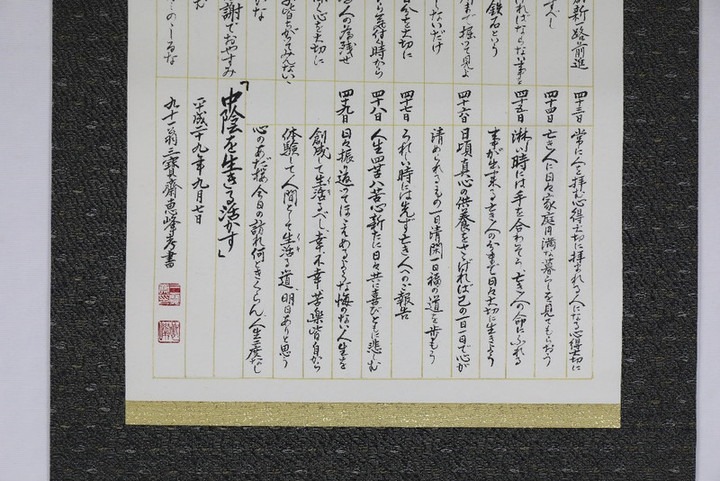 新路前進
べし
ければならない事を
鉄石という
まで探って見よ
しないだけ
今を大切に
気付時から
人の為残せ
心を大切に
皆ちがってみんないい
かな
謝でおやすみ
む
のしるな
四十三日 常に人を拝む心得大切に拝まれる人になる心得大切に
四十四日 亡き人に日々家庭円満な暮らしを見てもらおう
四十五日 淋しい時には手を合わそう 亡き人の命にふれる
事が出来る 亡き人の分まで日々大切に生きよう
四十六日 日頃真心の供養をさゝげれば己の一日一日で心が
清められ 一日清閑一日福の道を歩もう
四十七日 うれしい時には先ず亡き人へのご報告
四十八日 人生四苦八苦心新たに日々共に喜びともに悲しむ
四十九日 日々振り返ってほゝえめるような悔のない人生を
創成して生活るべし 幸不幸 苦楽皆自から
体験して人間として生活る道、明日ありと思う
心のあだ桜 今日の訪れ何ときくらん 人生二度なし
「中陰を生きる活かす」
平成二十九年九月七日
九十一翁三寶齋恵峰書